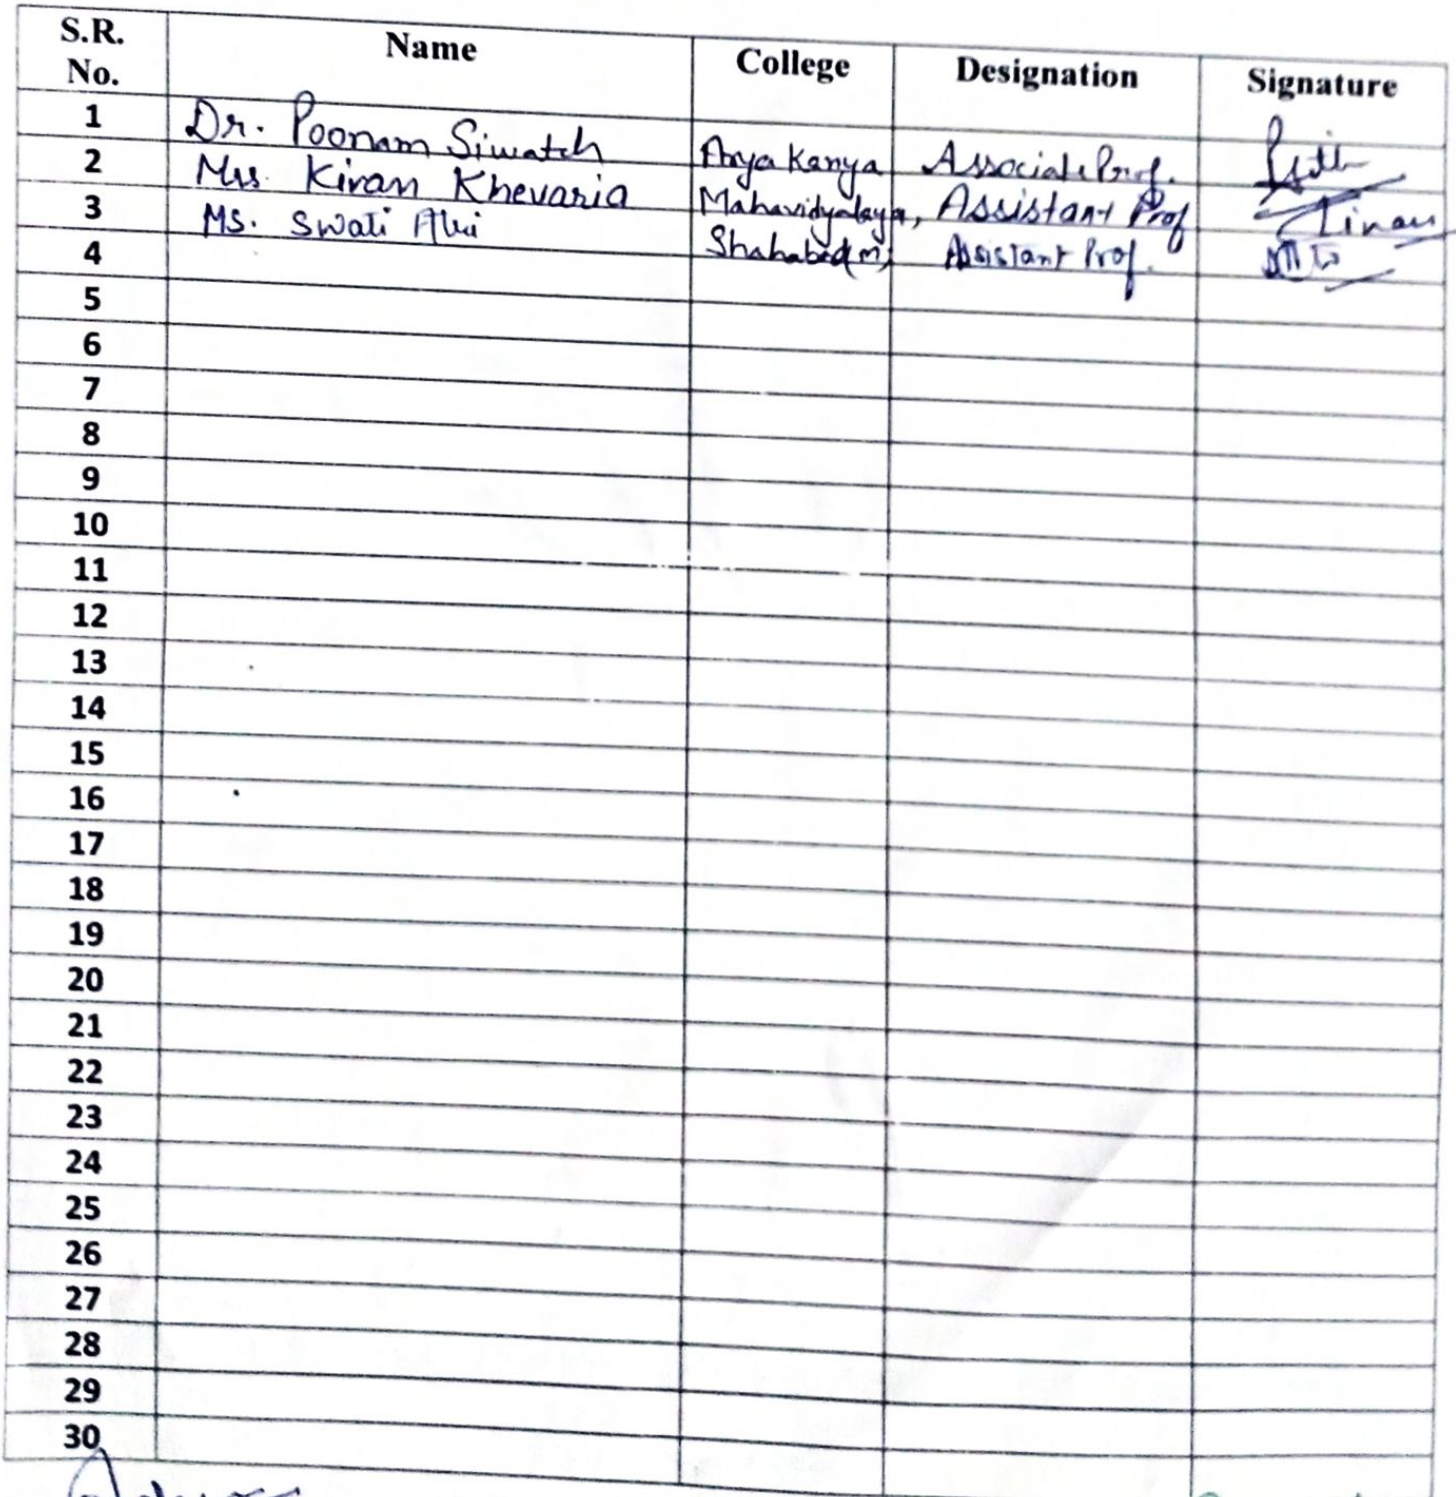 S.R. No. Name College Designation Signature
1 Dr. Poonam Siwatch Arya Kanya Associate Prof.
2 Mrs. Kiran Khevaria Mahavidyalaya, Assistant Prof
3 Ms. Swati Shahabad(m) Assistant Prof.
4
5
6
7
8
9
10
11
12
13
14
15
16
17
18
19
20
21
22
23
24
25
26
27
28
29
30